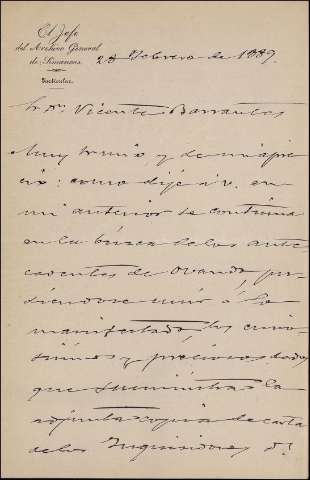 El Jefe
del Archivo General
de Simancas
Particular
28 Febrero de 1889.
Sr. Dn. Vicente Barrantes
Muy Sr. mio y de mi apre
cio: como dije á V. en
mi anterior se continúa
en la busca de los ante
cedentes de Ovando, pu
diendose unir á lo
manifestado, los curio
sisimos y preciosos datos
que suministra la
adjunta copia de carta
de los Inquisidores Dr.